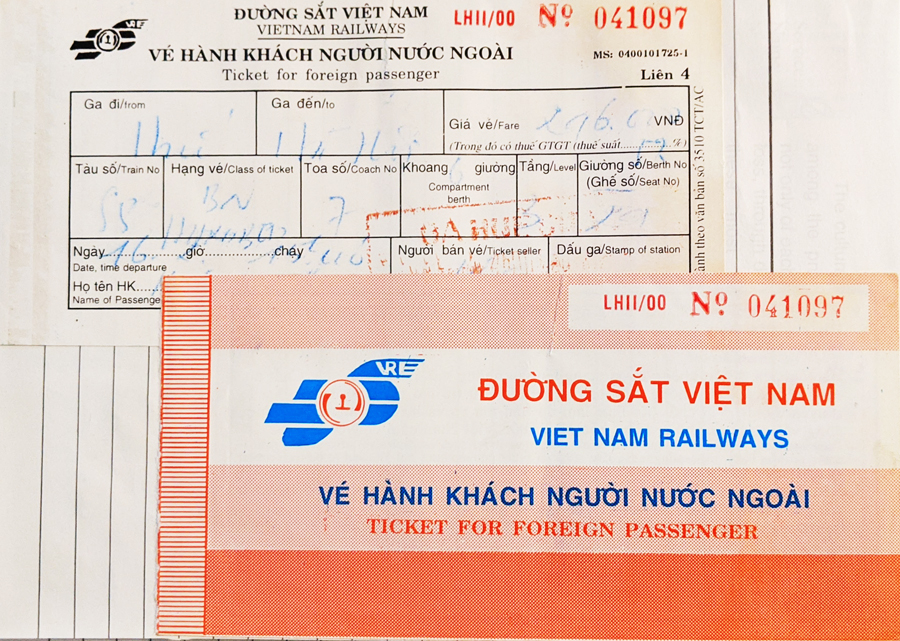 VRE
ĐƯỜNG SẮT VIỆT NAM
VIETNAM RAILWAYS
LHII/00 Nº 041097
VÉ HÀNH KHÁCH NGƯỜI NƯỚC NGOÀI
MS: 0400101725-1
Ticket for foreign passenger
Liên 4
Ga đi/from
Ga đến/to
Giá vé/Fare 296.000 VNĐ
(Trong đó có thuế GTGT (thuế suất..........%)
Tàu số/Train No
Hạng vé/Class of ticket
Toa số/Coach No
Khoang giường
Compartment
berth
Tầng/Level
Giường số/Berth No
(Ghế số/Seat No)
BN
7
6
GA HUẾ
Ngày 16 giờ chạy
Date, time departure
Người bán vé/Ticket seller
Dấu ga/Stamp of station
Họ tên HK......
Name of Passenge
ành theo văn bản số 3510 TCT/AC
LHII/00 Nº 041097
VRE
ĐƯỜNG SẮT VIỆT NAM
VIET NAM RAILWAYS
VÉ HÀNH KHÁCH NGƯỜI NƯỚC NGOÀI
TICKET FOR FOREIGN PASSENGER